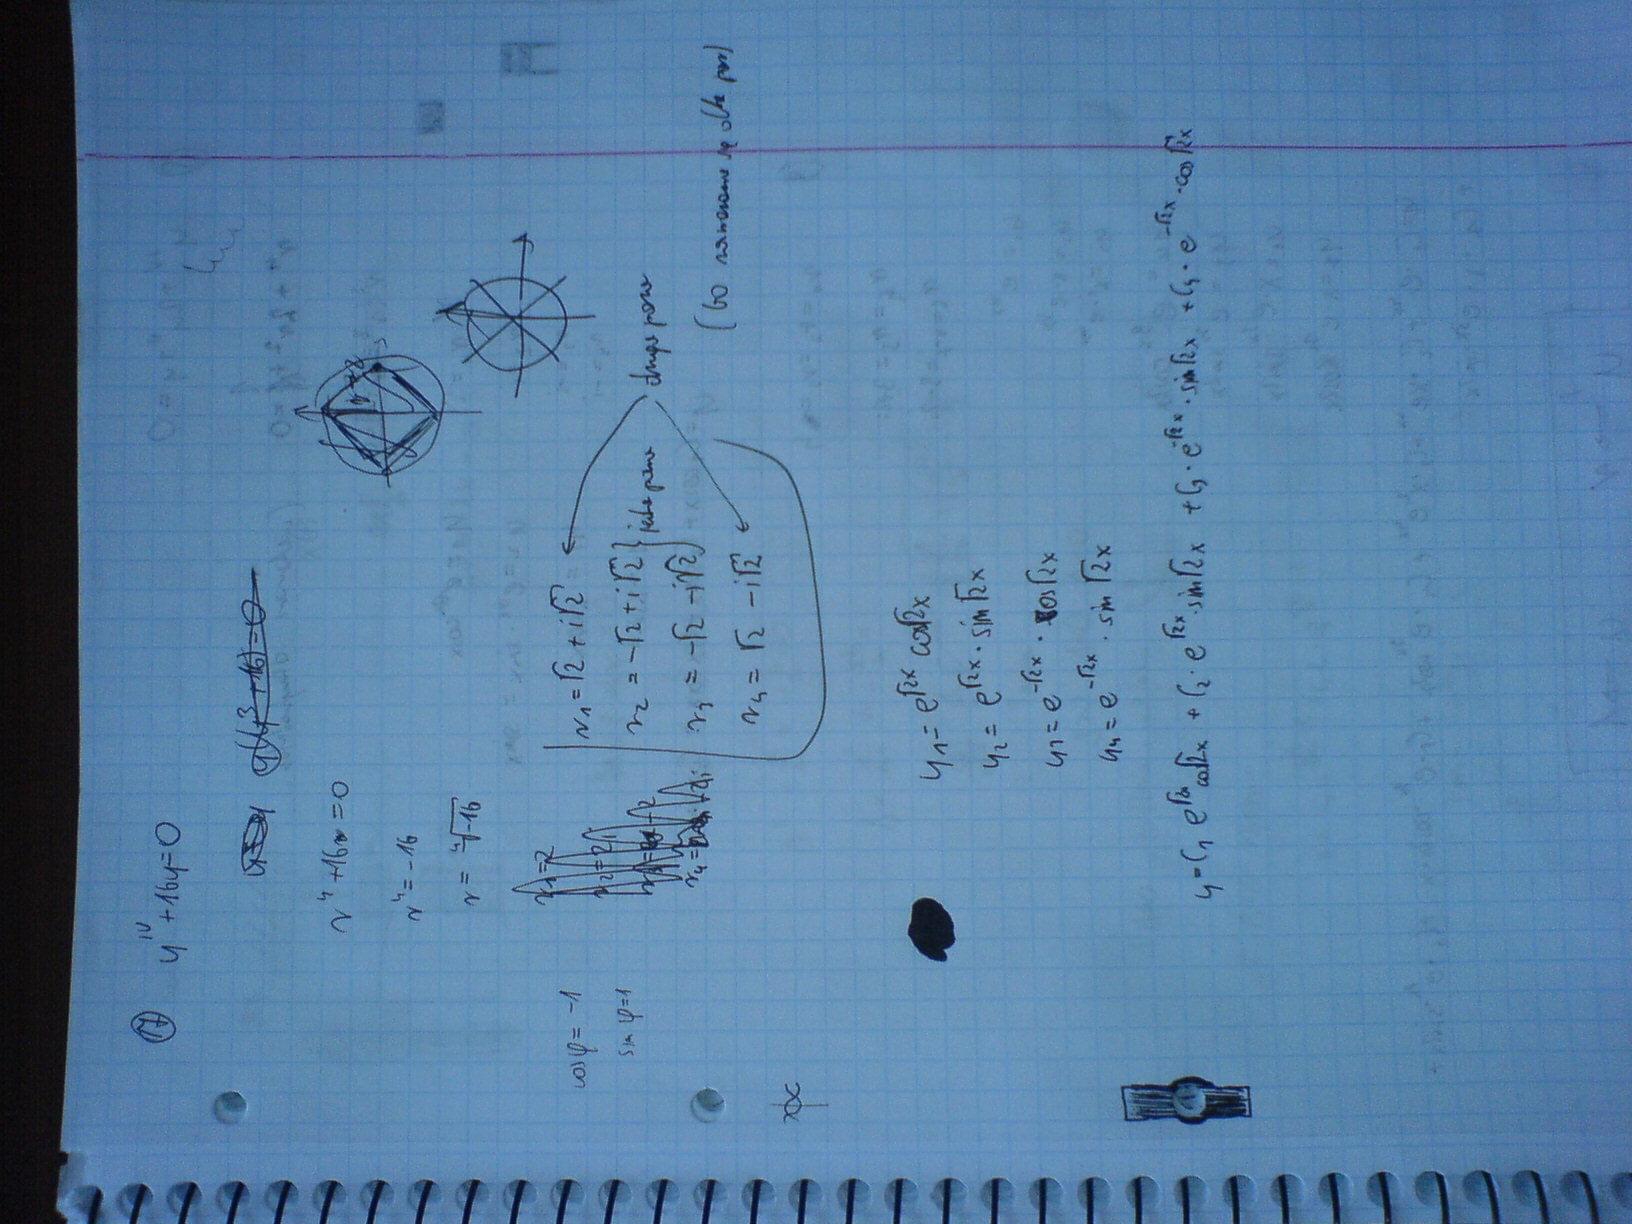 17 y^IV + 16y = 0
r⁴ + 16r = 0
r⁴ = -16
r = ⁴√-16
cos φ = -1
sin φ = 1
r₁ = √2 + i√2
r₂ = -√2 + i√2 } jedna para
r₃ = -√2 - i√2
r₄ = √2 - i√2
druga para
(bo
y₁ = e^√2x cos√2x
y₂ = e^√2x · sin√2x
y₃ = e^-√2x · cos√2x
y₄ = e^-√2x · sin√2x
y = C₁ e^√2x cos√2x + C₂ · e^√2x · sin√2x + C₃ · e^-√2x · sin√2x + C₄ · e^-√2x · cos√2x